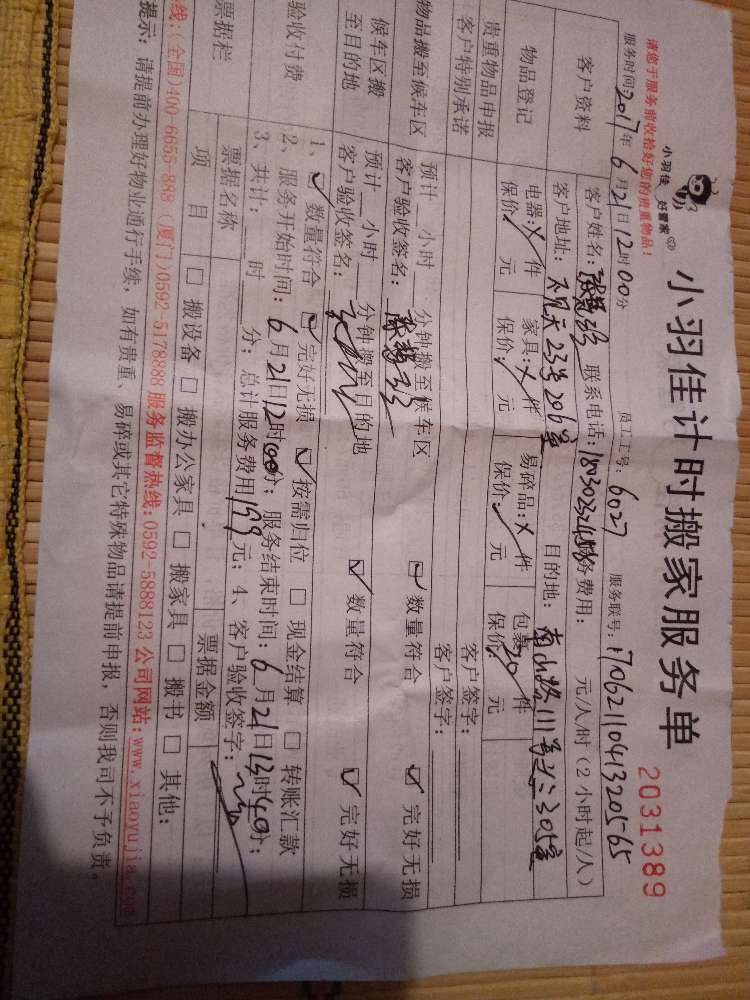 小羽佳 好管家
小羽佳计时搬家服务单
2031389
请您于服务前收拾好您的贵重物品!
服务时间:2017年6月21日12时00分 员工工号:6027 服务联号:17062110413205565
客户资料
客户姓名: 联系电话: 服务费用: 元/人/时(2小时起/人)
客户地址:不见天23号206室 目的地:南山路111号 305室
物品登记
电器:X件 家具:X件 易碎品:X件 包裹:10件
保价:/元 保价:/元 保价:/元 保价:/元
贵重物品申报 客户签字:
客户特别承诺 客户签字:
物品搬至候车区
预计 小时 分钟搬至候车区
客户验收签名: ☑数量符合 ☑完好无损
候车区搬至目的地
预计 小时 分钟搬至目的地
客户验收签名: ☑数量符合 ☑完好无损
验收付费
1、☑数量符合 ☑完好无损 ☑按需归位 □现金结算 □转账汇款
2、服务开始时间:6月21日12时00分;服务结束时间:6月21日13时40分;
3、共计: 时 分;总计服务费用159元;4、客户验收签字:
票据栏
票据名称 票据金额
项目 □搬设备 □搬办公家具 □搬家具 □搬书 □其他:
线:(全国)400-6655-888 (厦门)0592-5178888 服务监督热线:0592-5888123 公司网站:www.xiaoyujia.com
提示:请提前办理好物业通行手续,如有贵重、易碎或其它特殊物品请提前申报,否则我司不予负责。